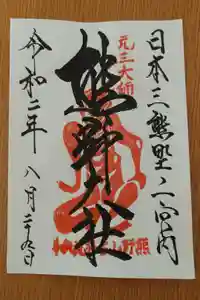 日本三熊野ノ宮内
元三大師
熊野大社
令和二年 八月二十九日